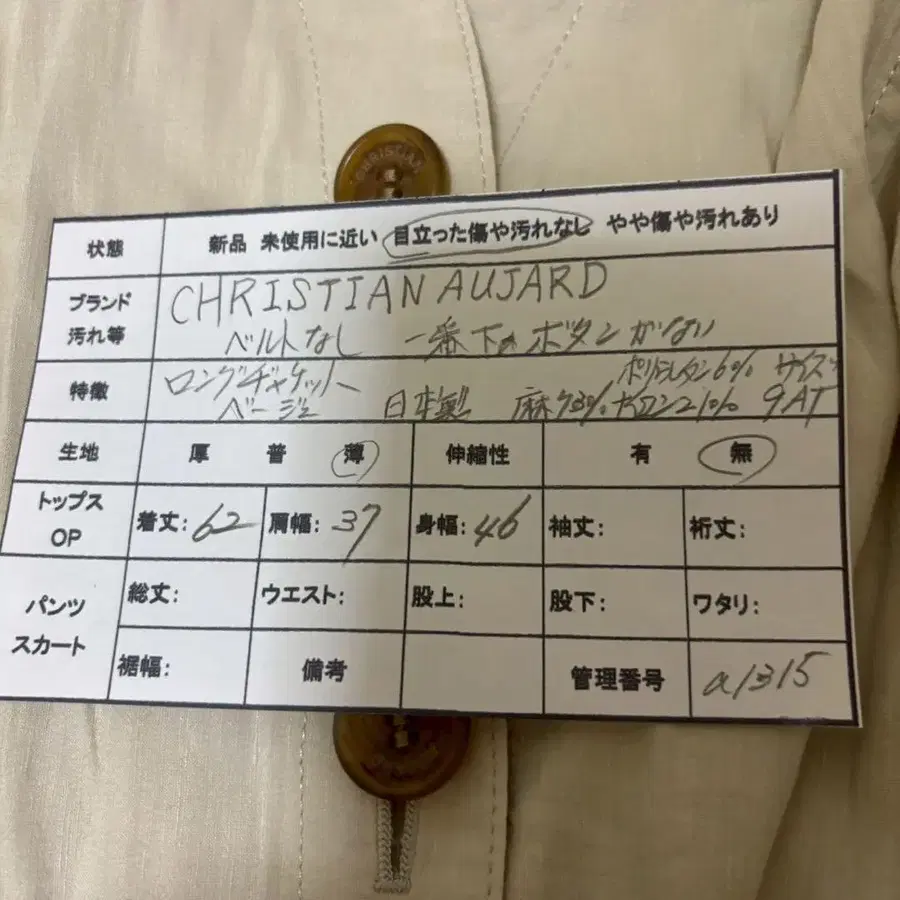 CHRISTIAN
状態 新品 未使用に近い 目立った傷や汚れなし やや傷や汚れあり
ブランド CHRISTIAN AUJARD
汚れ等 ベルトなし 一番下のボタンがない
特徴 ロングジャケット ポリウレタン6% サイズ
ベージュ 日本製 麻73% ナイロン21% 9AT
生地 厚 普 薄 伸縮性 有 無
トップス
OP 着丈: 62 肩幅: 37 身幅: 46 袖丈: 裄丈:
パンツ
スカート 総丈: ウエスト: 股上: 股下: ワタリ:
裾幅: 備考 管理番号 a1315